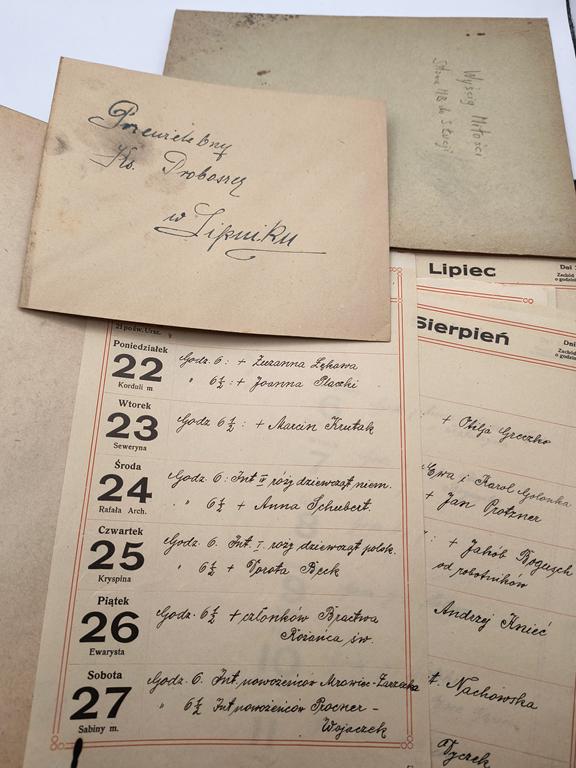 Przewielebny
Ks. Proboszcz
w Lipniku
Wyścig Miłości
Lipiec
Sierpień
21 po św. Ursz.
Poniedziałek
22
Korduli m
Godz. 6: + Zuzanna Lękawa
" 6½: + Joanna Placzki
Wtorek
23
Seweryna
Godz 6½: + Marcin Krutak
Środa
24
Rafała Arch.
Godz. 6: Int II róży dziewcząt niem.
" 6½ + Anna Schubert.
Czwartek
25
Kryspina
Godz. 6. Int. I. róży dziewcząt polsk.
" 6½ + Dorota Bęck
Piątek
26
Ewarysta
Godz. 6½ + członków Bractwa
Różańca św.
Sobota
27
Sabiny m.
Godz. 6. Int. nowożeńców Mrowiec-Zarzecka
" 6½ Int nowożeńców Procner -
Wojaczek
+ Otilja Greczko
Ewa i Karol Golonka
+ Jan Protzner
+ Jakób Bogusch
od robotników
Andrzej Knieć
Nachowska
Tyczek